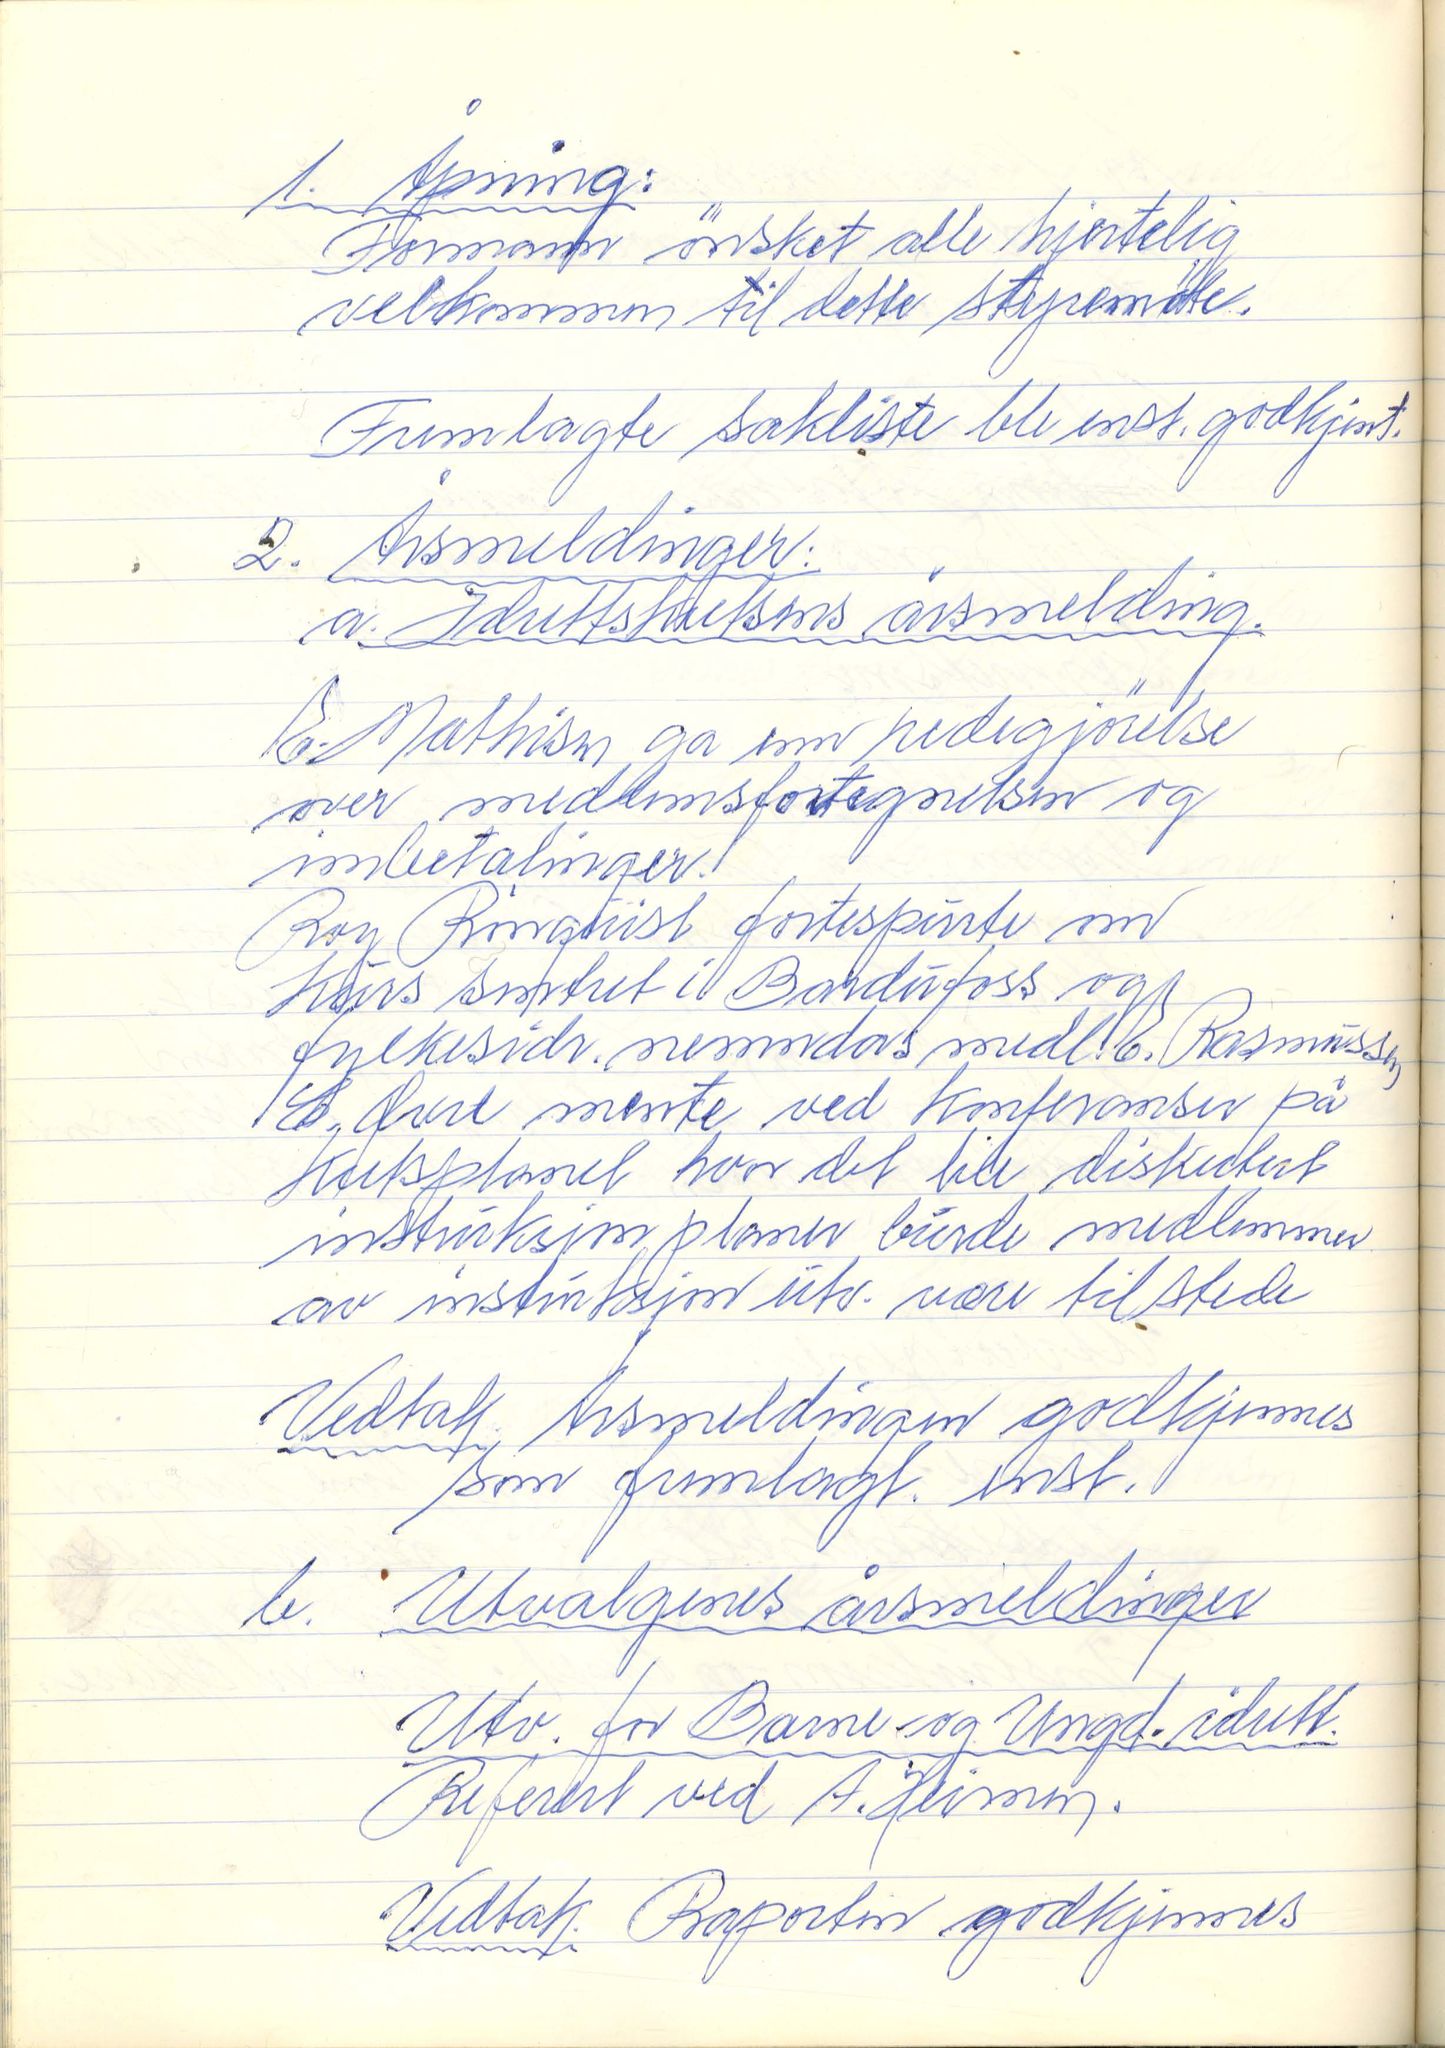 1. Åpning:
Formann önsket alle hjertelig
velkommen til dette styremöte.
Fremlagte sakliste ble enst. godkjent.
2. Årsmeldinger:
a. Idrettskretsens årsmelding.
E. Mathisen ga enn redegjörelse
over medlemsfortegnelsen og
innbetalinger.
Roy Ringquist fortespurte om
kurs sentret i Bardufoss og
fylkesidr. nemndas medl. E. Rasmussen
E. mente ved konferanser på
kretsplanet hvor det ble diskutert
instruksjon planer burde medlemmer
av instruksjon utv. være til stede
Vedtak Årsmeldingen godkjennes
som fremlagt. enst.
b. Utvalgenes årsmeldinger
Utv. for Barne-og Ungd. idrett.
Referert ved A. Heimen.
Vedtak. Raporten godkjennes